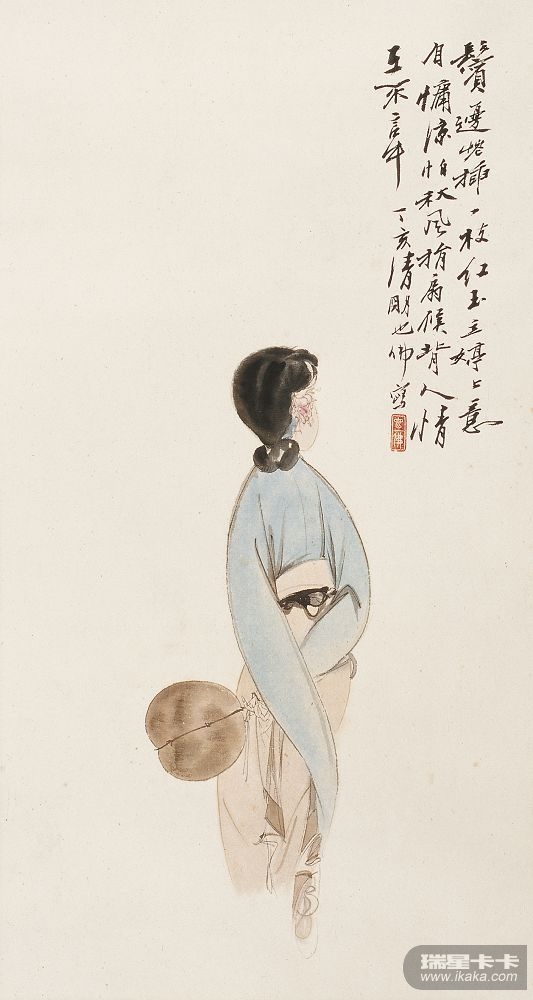 鬢邊插一枝紅玉立婷〻意
自慵涼怕秋風捐扇候背人情
在不言中 丁亥清明也佛寫
瑞星卡卡
www.ikaka.com